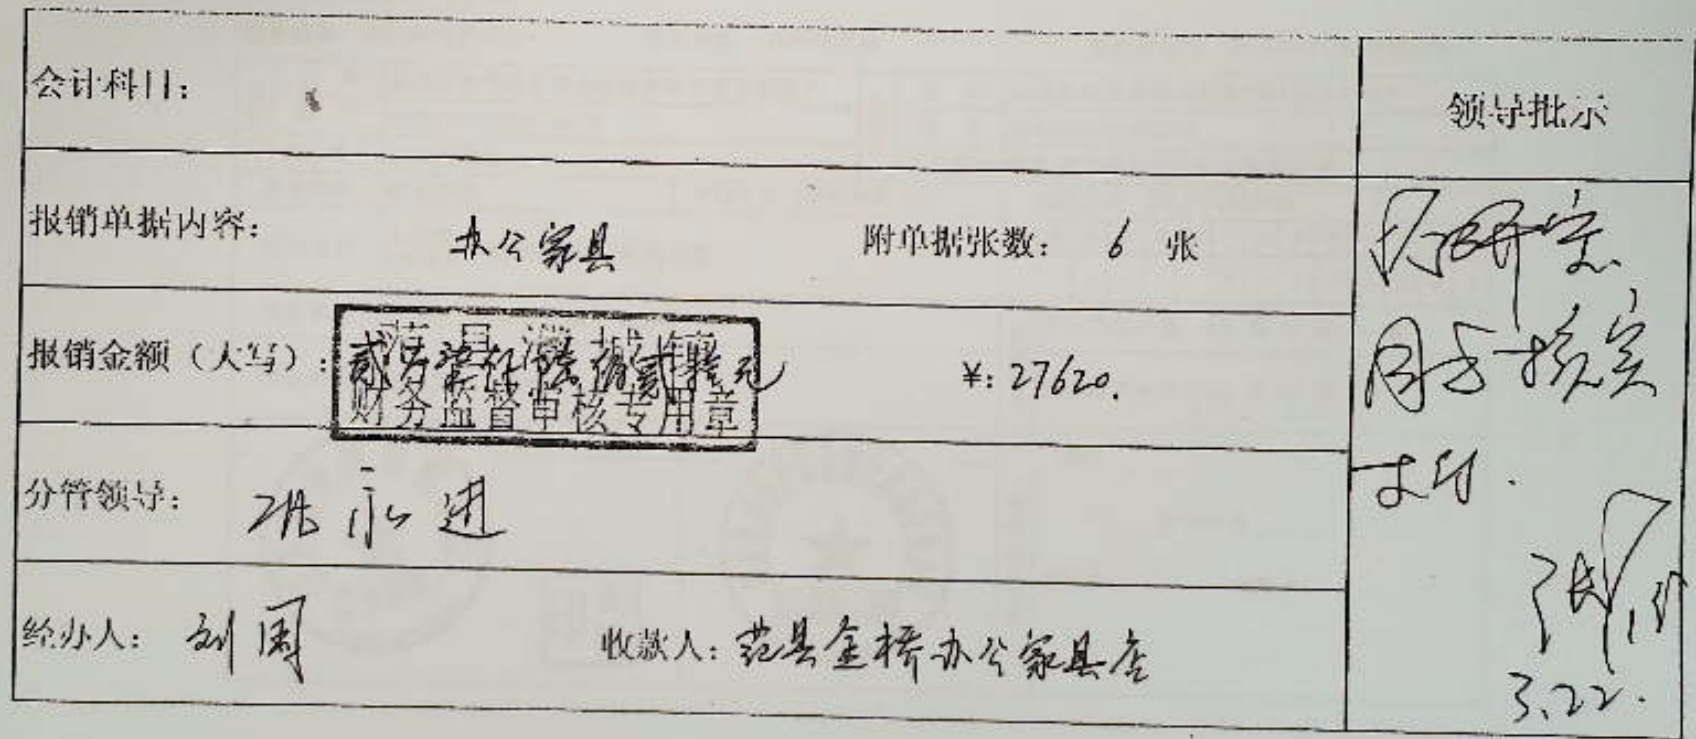 会计科目：
领导批示
报销单据内容： 办公家具 附单据张数： 6 张
报销金额（大写）： 贰万柒仟陆佰贰拾元 ¥: 27620.
范县濮城镇
财务监督审核专用章
分管领导： 永进
经办人： 刘国 收款人：范县金桥办公家具店
研究
同意核实
支付.
3.22.